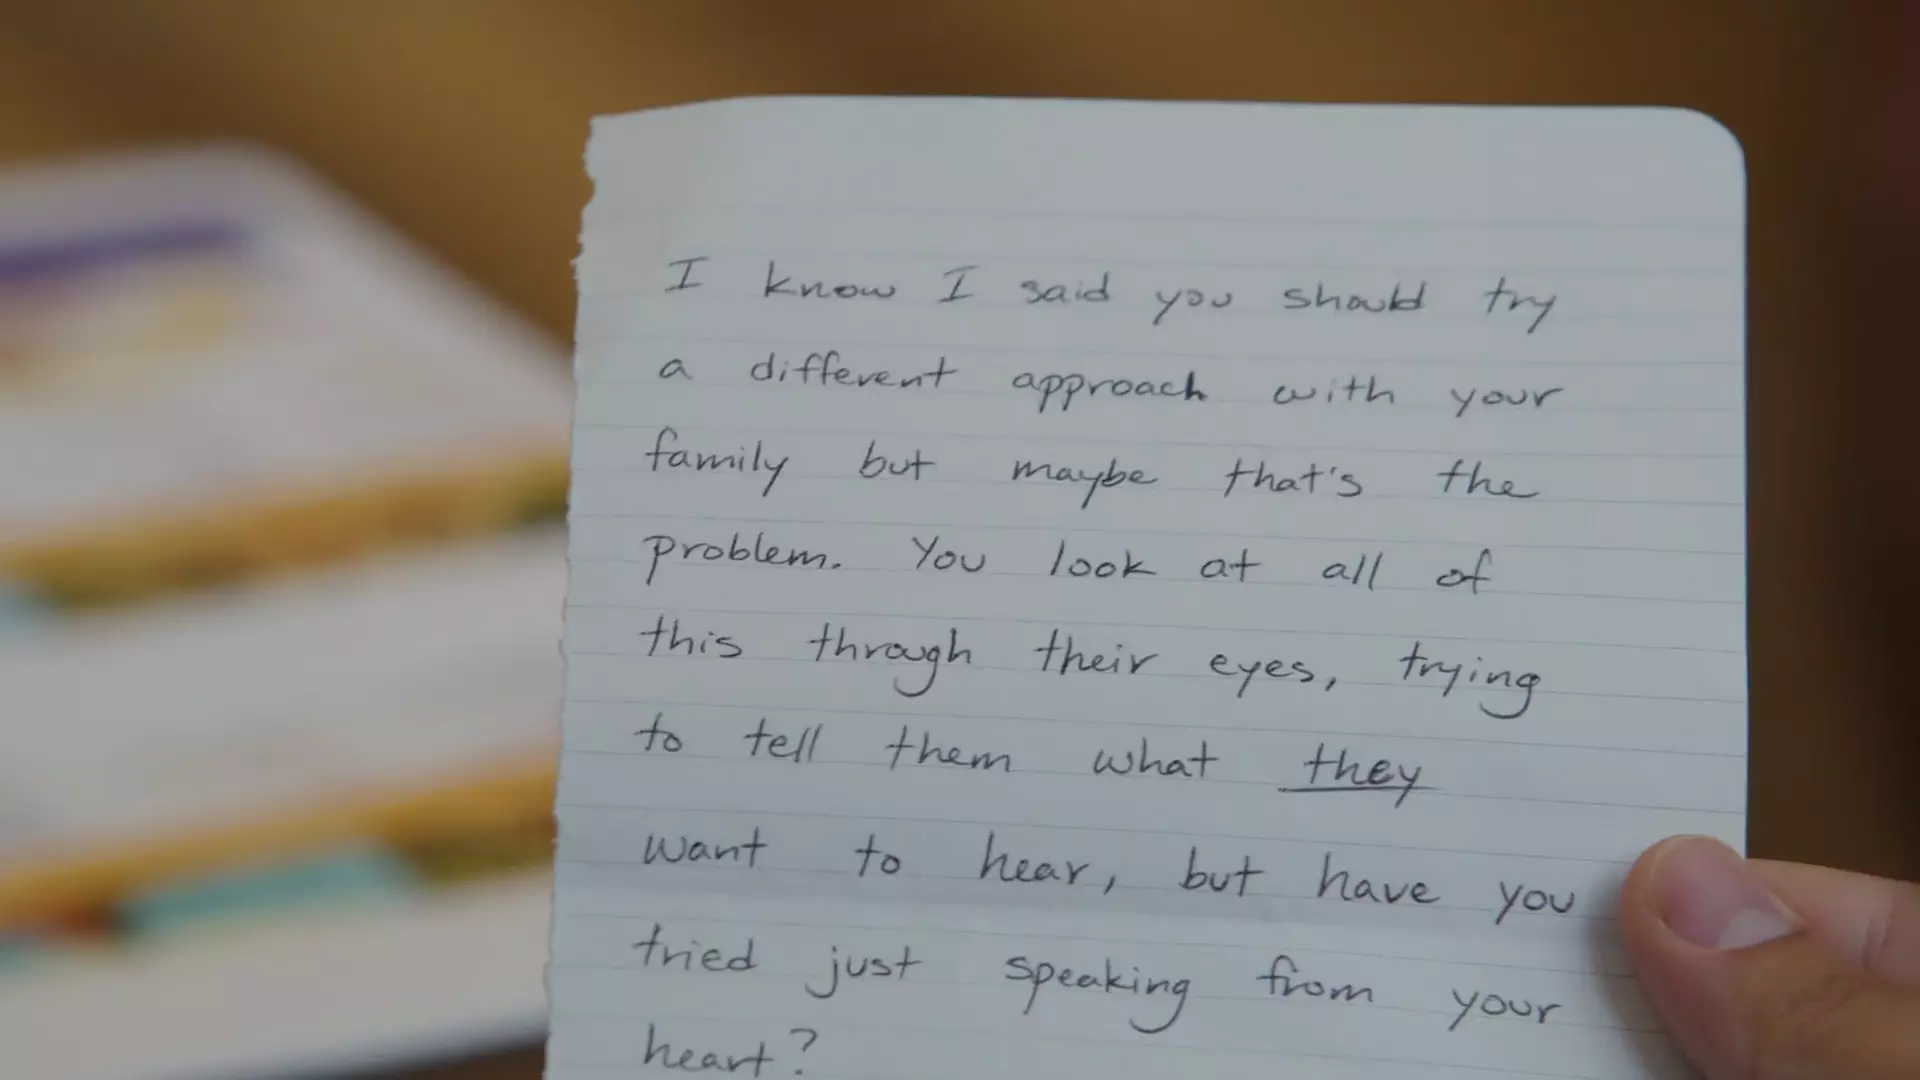 I know I said you should try
a different approach with your
family but maybe that's the
problem. You look at all of
this through their eyes, trying
to tell them what they
want to hear, but have you
tried just speaking from your
heart?